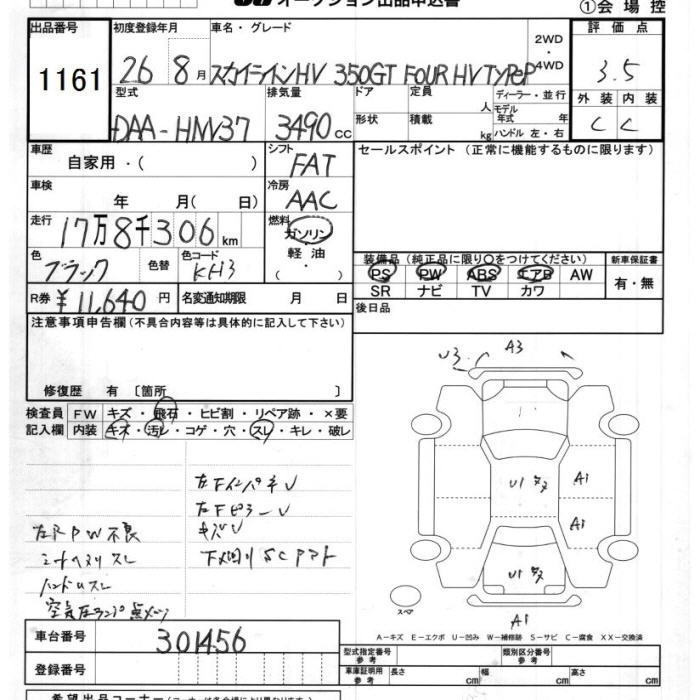 オークション出品申込書
①会場控
出品番号 初度登録年月 車名・グレード 評価点
1161 26 8月 スカイラインHV 350GT FOUR HV TYPeP 2WD・4WD 3.5
型式 排気量 ドア 定員 ディーラー・並行 外装 内装
DAA-HNV37 3490cc 形状 積載 人 kg モデル年式 年 ハンドル 左・右 C C
車歴 シフト セールスポイント (正常に機能するものに限ります)
自家用・( ) FAT
車検 年 月( 日) 冷房 AAC
走行 17万8千306km 燃料 ガソリン・軽油
色 ブラック 色替 色コード KH3
装備品 (純正品に限り〇をつけてください) 新車保証書
PS PW ABS エアB AW 有・無
SR ナビ TV カワ
R券 ¥11,640円 名変通知期限 月 日 後日品
注意事項申告欄(不具合内容等は具体的に記入して下さい)
修復歴 有 〔箇所 〕
検査員記入欄 FW キズ・飛石・ヒビ割・リペア跡・×要
内装 キズ・汚レ・コゲ・穴・スレ・キレ・破レ
U3 A3
左FインパネU
左FピラーU
キズU
左RPW不良
シートヘタリスレ
下廻りSCアマト
ハンドルスレ
空気圧ランプ点メツ
U1 A1
A1
U1
スペア
A1
A-キズ E-エクボ U-凹み W-補修跡 S-サビ C-腐食 XX-交換済
車台番号 301456
登録番号
型式指定番号 参考 類別区分番号 参考
車庫証明用 参考 長さ cm 幅 cm 高さ cm
希望出品コーナー